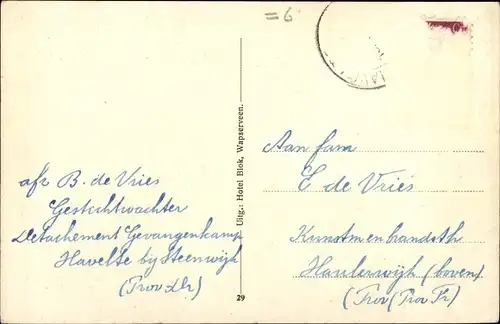 =6
afz B. de Vries
Gestichtwachter
Detachement Gevangenkamp
Havelte by Steenwijk
(Prov Dr)
Uitg.: Hotel Blok, Wapserveen.
29
Aan fam
E de Vries
Kunstm en brandsth
Haulerwijk (boven)
(Prov (Prov Fr)